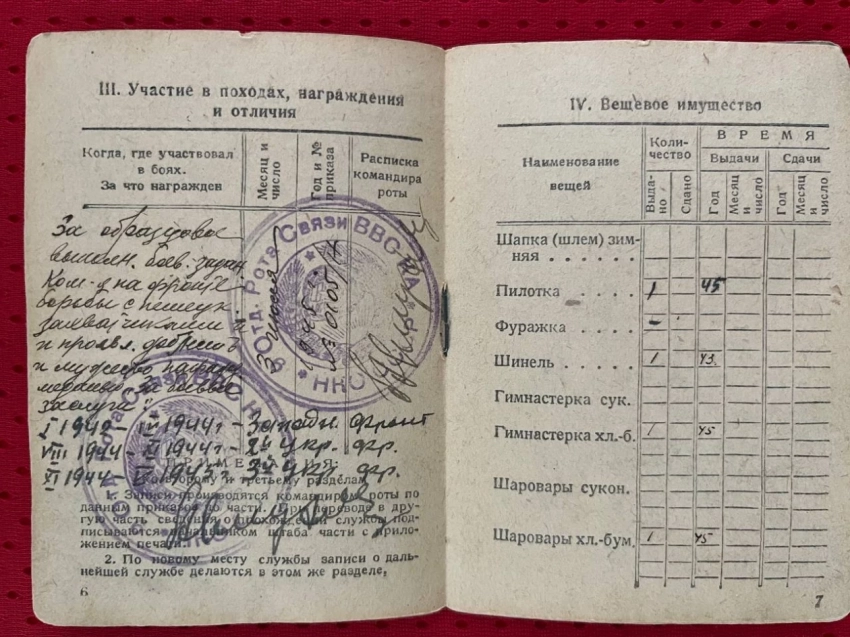 III. Участие в походах, награждения
и отличия
Когда, где участвовал
в боях.
За что награжден
Месяц и
число
Год и №
приказа
Расписка
командира
роты
За образцовое
выполн. боев. задан.
Ком-д на фронте
борьбы с немецк
захватчиками и
и мужество
медалью "За боевые
заслуги"
1945
I 1942 - IV 1944г - Западн. Фронт
VIII 1944 - 1944г - 2й Укр. фр.
XI 1944 - 1945г. 3й Укр. фр.
ПРИМЕЧАНИЯ
ко второму и третьему разделам
1. Записи производятся командиром роты по
данным приказов по части. При переводе в дру-
гую часть сведения о прохождении службы под-
писываются начальником штаба части с прило-
жением печати.
2. По новому месту службы записи о даль-
нейшей службе делаются в этом же разделе,
6
Отд. Рота Связи ВВС КА
Рота Связи ВВС
IV. Вещевое имущество
Наименование
вещей
Коли-
чество
ВРЕМЯ
Выдачи
Сдачи
Выда-
но
Сдано
Год
Месяц
и
число
Год
Месяц
и
число
Шапка (шлем) зим-
няя . . . . . .
Пилотка . . . . 1 45
Фуражка . . . . -
Шинель . . . . 1 43
Гимнастерка сук.
Гимнастерка хл.-б. 1 45
Шаровары сукон.
Шаровары хл.-бум. 1 45
7